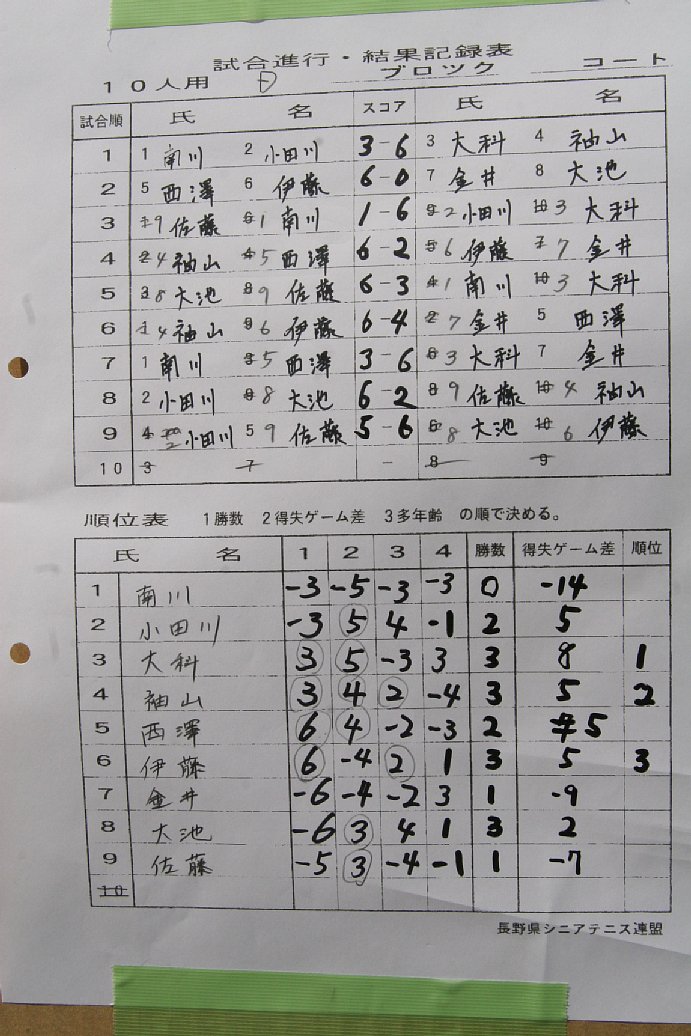 試合進行・結果記録表
10人用 D ブロック コート
試合順 氏 名 スコア 氏 名
1 1 南川 2 小田川 3-6 3 大科 4 袖山
2 5 西澤 6 伊藤 6-0 7 金井 8 大池
3 9 佐藤 1 南川 1-6 2 小田川 3 大科
4 4 袖山 5 西澤 6-2 6 伊藤 7 金井
5 8 大池 9 佐藤 6-3 1 南川 3 大科
6 4 袖山 6 伊藤 6-4 7 金井 5 西澤
7 1 南川 5 西澤 3-6 3 大科 7 金井
8 2 小田川 8 大池 6-2 9 佐藤 4 袖山
9 2 小田川 9 佐藤 5-6 8 大池 6 伊藤
10 3 7 - 8 9
順位表 1勝数 2得失ゲーム差 3多年齢 の順で決める。
氏 名 1 2 3 4 勝数 得失ゲーム差 順位
1 南川 -3 -5 -3 -3 0 -14
2 小田川 -3 5 4 -1 2 5
3 大科 3 5 -3 3 3 8 1
4 袖山 3 4 2 -4 3 5 2
5 西澤 6 4 -2 -3 2 5
6 伊藤 6 -4 2 1 3 5 3
7 金井 -6 -4 -2 3 1 -9
8 大池 -6 3 4 1 3 2
9 佐藤 -5 3 -4 -1 1 -7
10
長野県シニアテニス連盟